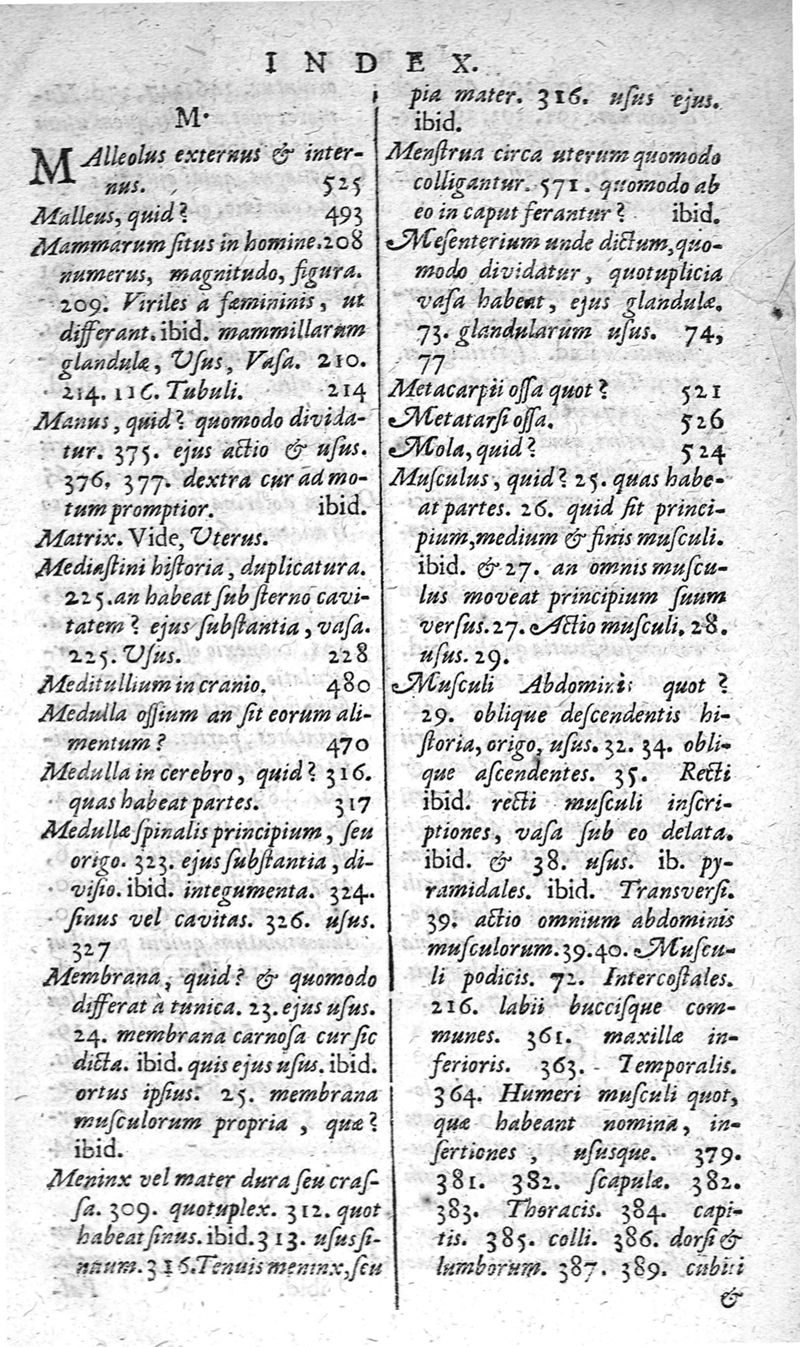 INDEX.
M.
MAlleolus externus & inter-
nus. 525
Malleus, quid? 493
Mammarum ſitus in homine. 208
numerus, magnitudo, figura.
209. Viriles à fæmininis, ut
differant. ibid. mammillarum
glandulæ, Uſus, Vaſa. 210.
214. 116. Tubuli. 214
Manus, quid? quomodo divida-
tur. 375. ejus actio & uſus.
376, 377. dextra cur ad mo-
tum promptior. ibid.
Matrix. Vide, Uterus.
Mediaſtini hiſtoria, duplicatura.
225. an habeat ſub ſterno cavi-
tatem? ejus ſubſtantia, vaſa.
225. Uſus. 228
Meditullium in cranio. 480
Medulla oſſium an ſit eorum ali-
mentum? 470
Medulla in cerebro, quid? 316.
quas habeat partes. 317
Medullæ ſpinalis principium, ſeu
origo. 323. ejus ſubſtantia, di-
viſio. ibid. integumenta. 324.
ſinus vel cavitas. 326. uſus.
327
Membrana, quid? & quomodo
differat à tunica. 23. ejus uſus.
24. membrana carnoſa cur ſic
dicta. ibid. quis ejus uſus. ibid.
ortus ipſius. 25. membrana
muſculorum propria, quæ?
ibid.
Meninx vel mater dura ſeu craſ-
ſa. 309. quotuplex. 312. quot
habeat ſinus. ibid. 313. uſus ſi-
nuum. 316. Tenuis meninx, ſeu
pia mater. 316. uſus ejus.
ibid.
Menſtrua circa uterum quomodo
colligantur. 571. quomodo ab
eo in caput ferantur? ibid.
Meſenterium unde dictum, quo-
modo dividatur, quotuplicia
vaſa habeat, ejus glandulæ.
73. glandularum uſus. 74,
77
Metacarpii oſſa quot? 521
Metatarſi oſſa. 526
Mola, quid? 524
Muſculus, quid? 25. quas habe-
at partes. 26. quid ſit princi-
pium, medium & finis muſculi.
ibid. & 27. an omnis muſcu-
lus moveat principium ſuum
verſus. 27. Actio muſculi. 28.
uſus. 29.
Muſculi Abdominis quot?
29. oblique deſcendentis hi-
ſtoria, origo, uſus. 32. 34. obli-
que aſcendentes. 35. Recti
ibid. recti muſculi inſcri-
ptiones, vaſa ſub eo delata.
ibid. & 38. uſus. ib. py-
ramidales. ibid. Transverſi.
39. actio omnium abdominis
muſculorum. 39. 40. Muſcu-
li podicis. 72. Intercoſtales.
216. labii bucciſque com-
munes. 361. maxillæ in-
ferioris. 363. Temporalis.
364. Humeri muſculi quot,
quæ habeant nomina, in-
ſertiones, uſusque. 379.
381. 382. ſcapulæ. 382.
383. Thoracis. 384. capi-
tis. 385. colli. 386. dorſi &
lumborum. 387. 389. cubiti
&